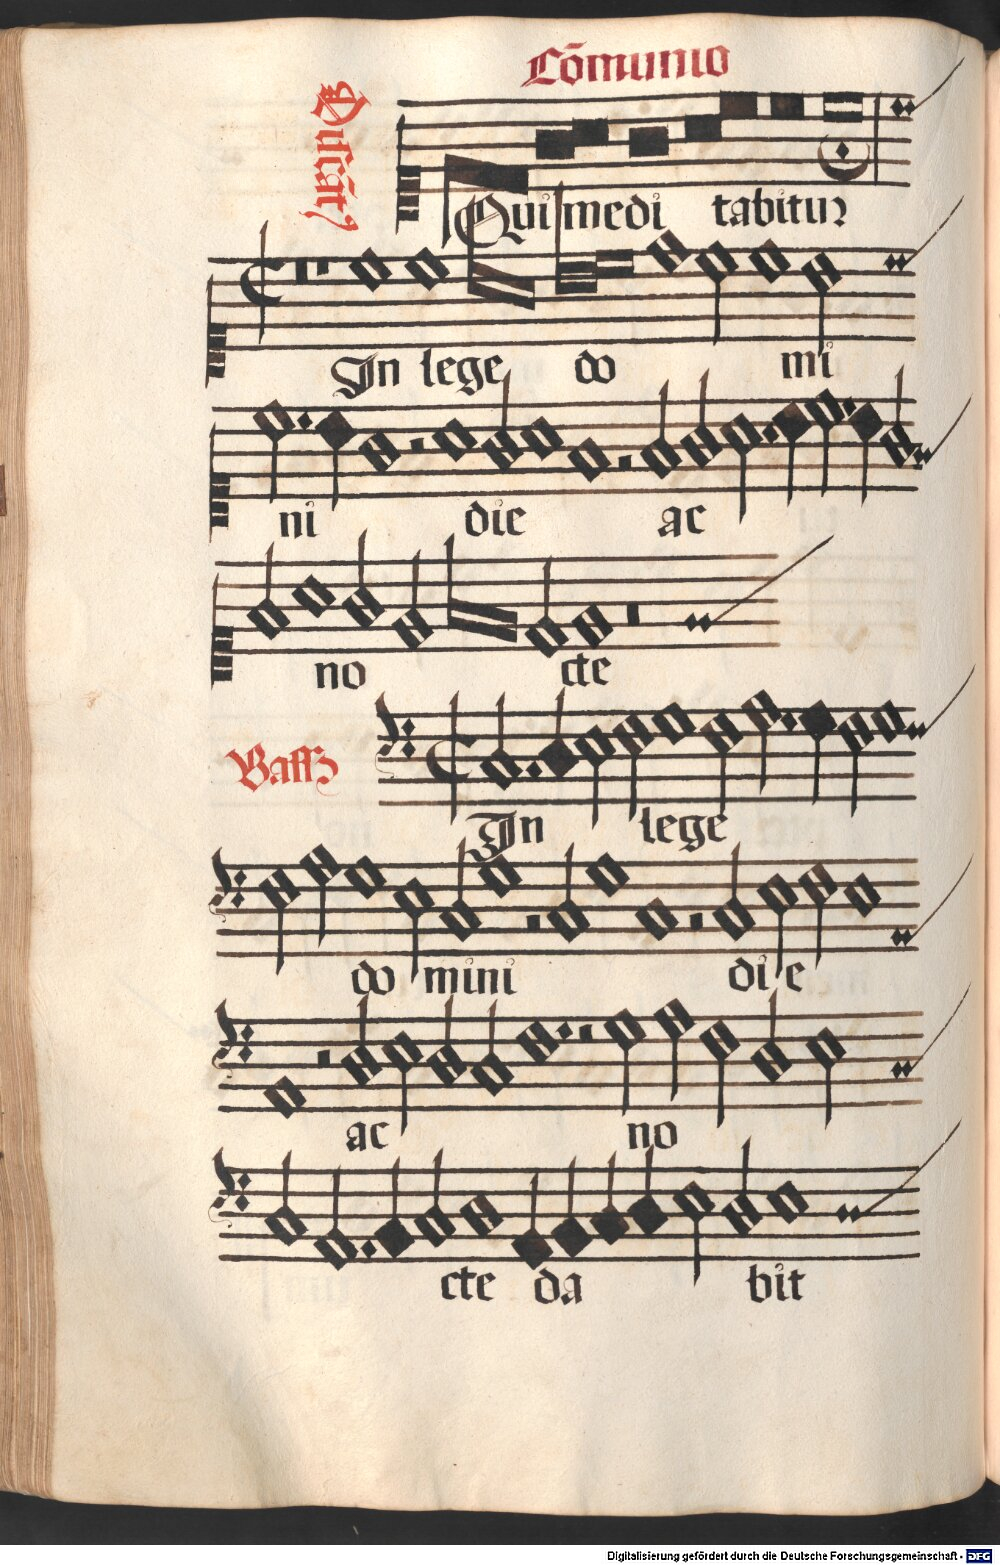 Cōmunio
Discāt9
Qui medi tabitur
In lege do mi
ni die ac
no cte
Bass3
In lege
do mini die
ac no
cte da bit
Digitalisierung gefördert durch die Deutsche Forschungsgemeinschaft - DFG